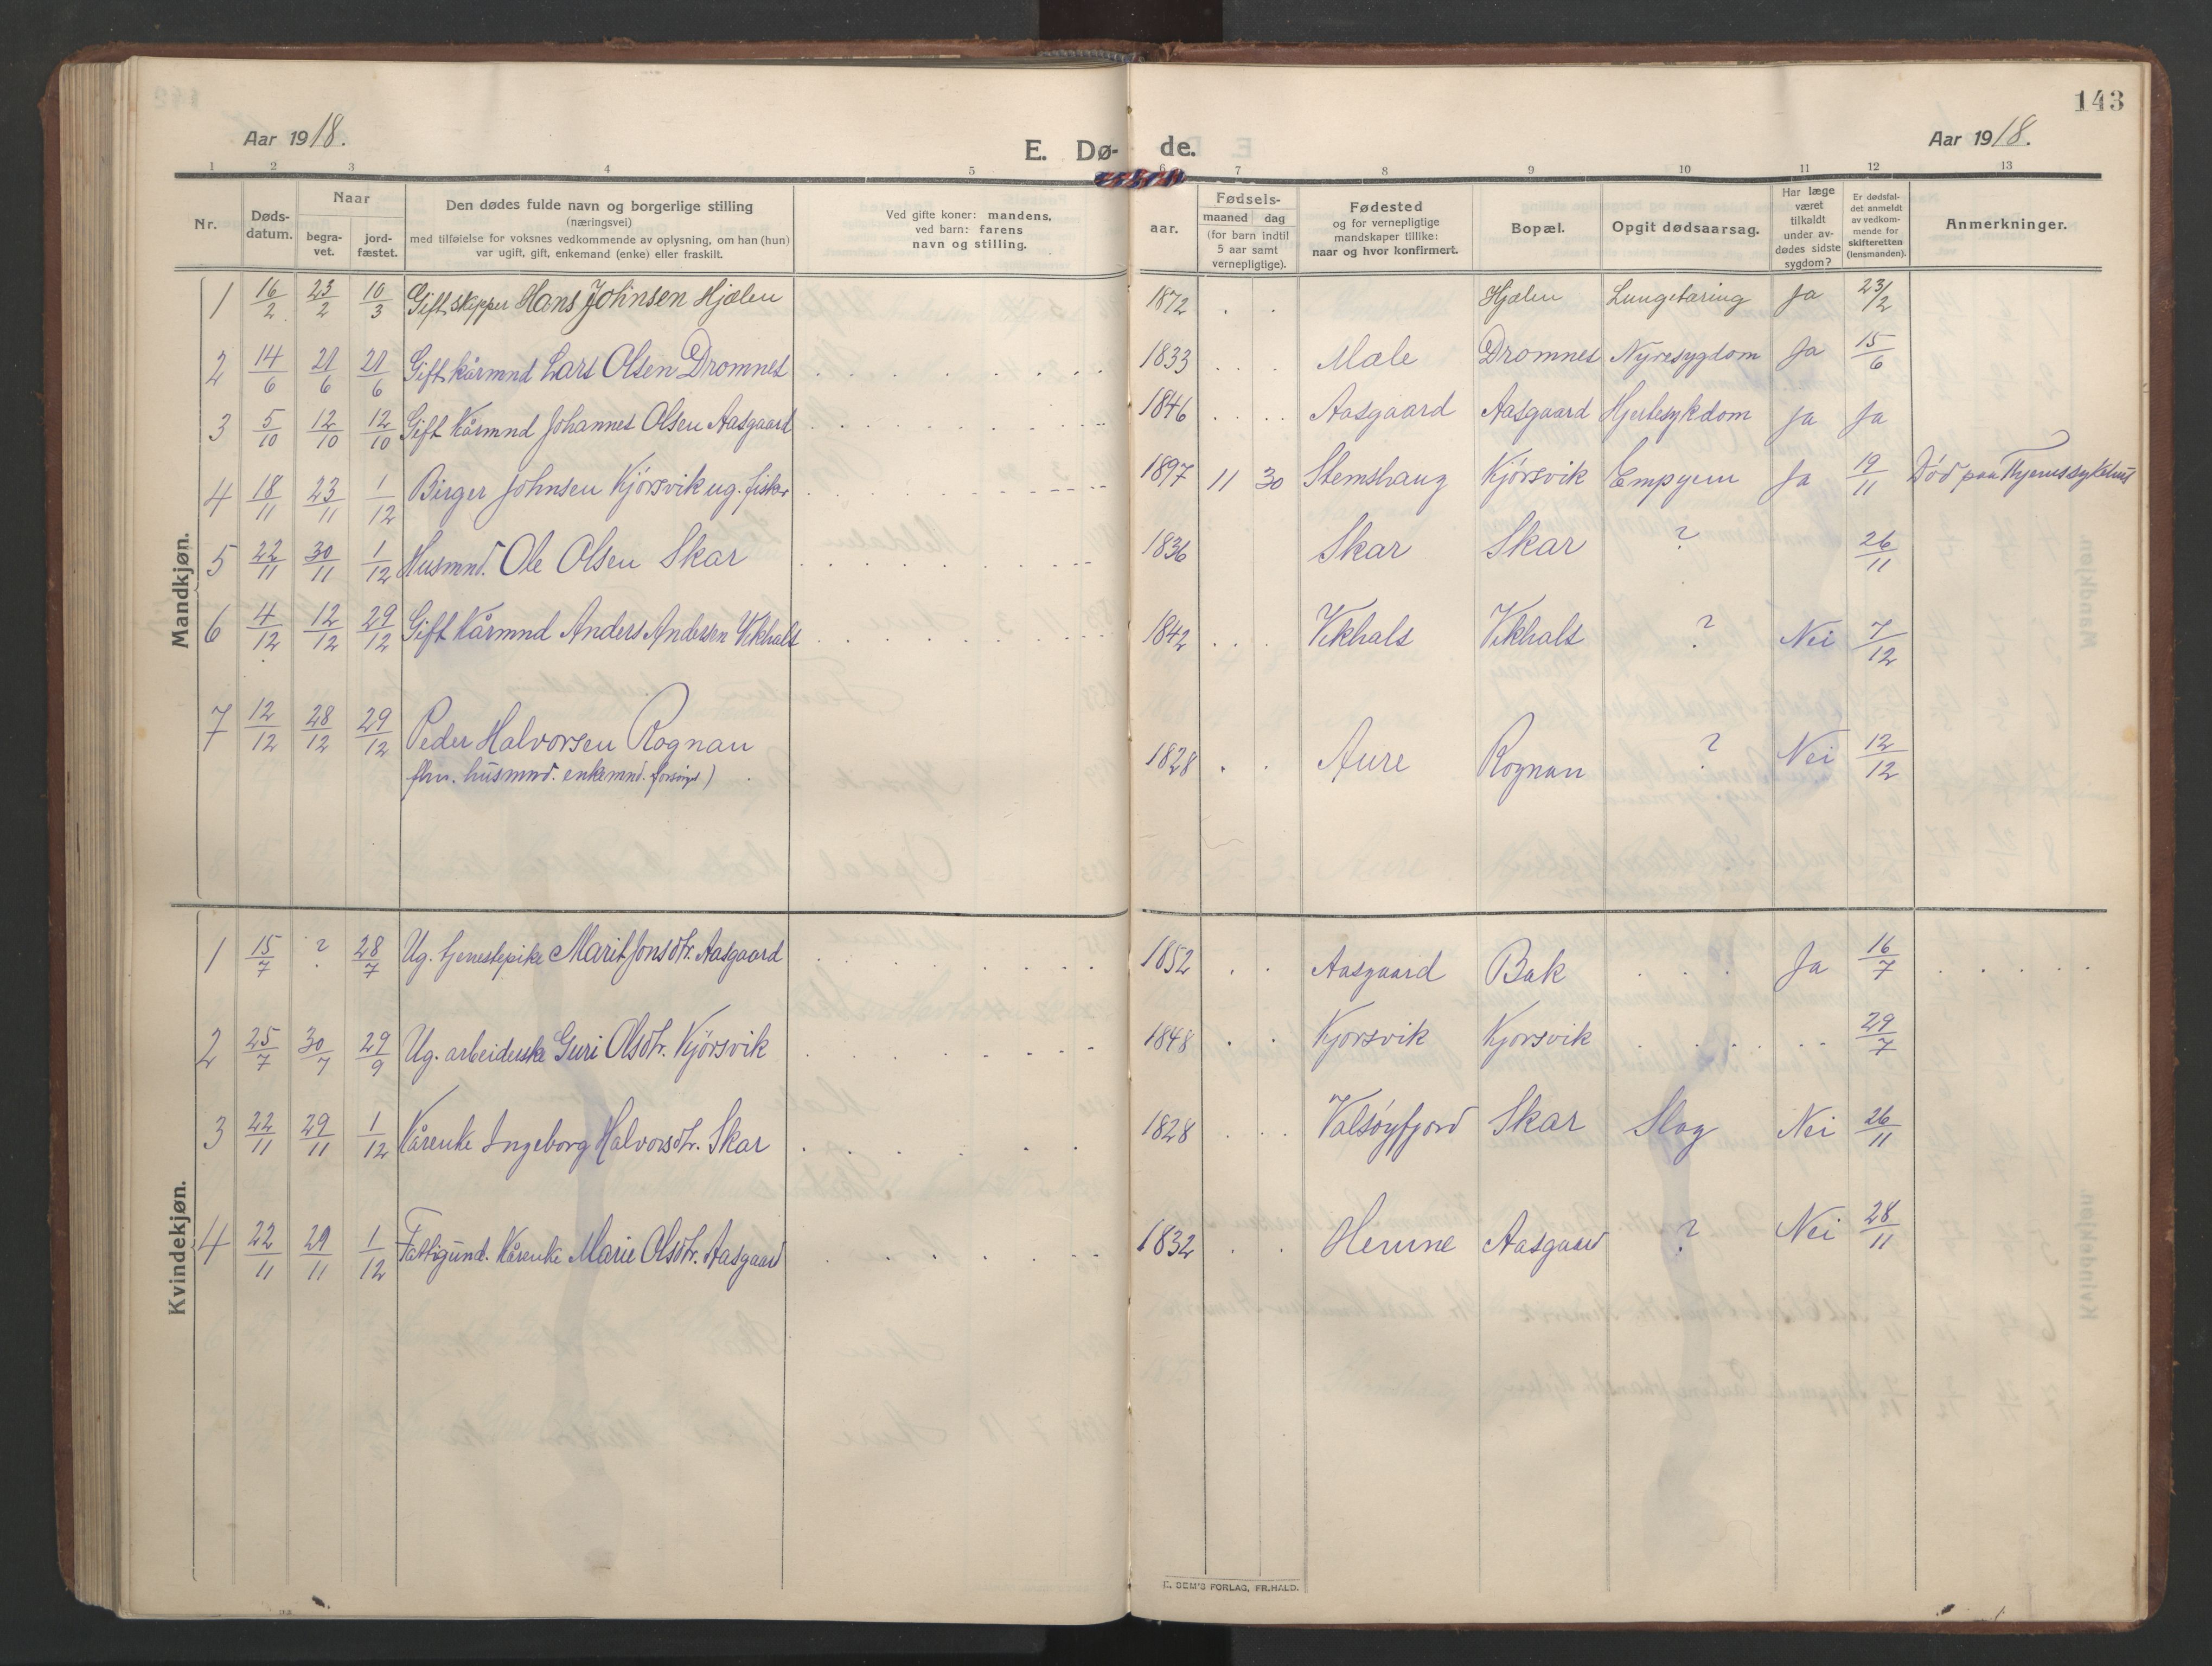 143
Aar 1918. E. Dø- de. Aar 1918.
1 2 3 4 5 6 7 8 9 10 11 12 13
Nr. Døds-datum. Naar begra-vet. jord-fæstet. Den dødes fulde navn og borgerlige stilling (næringsvei) med tilføielse for voksnes vedkommende av oplysning, om han (hun) var ugift, gift, enkemand (enke) eller fraskilt. Ved gifte koner: mandens, ved barn: farens navn og stilling. Fødsels- aar. maaned dag (for barn indtil 5 aar samt vernepligtige). Fødested og for vernepligtige mandskaper tillike: naar og hvor konfirmert. Bopæl. Opgit dødsaarsag. Har læge været tilkaldt under av-dødes sidste sygdom? Er dødsfal-det anmeldt av vedkom-mende for skifteretten (lensmanden). Anmerkninger.
Mandkjøn.
1 16/2 23/2 10/3 Gift skipper Hans Johnsen Hjælen 1872 . . Hjælen Lungetæring Ja 23/2
2 14/6 21/6 21/6 Gift kårmnd Lars Olsen Dromnes 1833 Mæle Dromnes Nyresygdom Ja 15/6
3 5/10 12/10 12/10 Gift Kårmnd Johannes Olsen Aasgaard 1846 Aasgaard Aasgaard Hjertesykdom Ja Ja
4 18/11 23/11 1/12 Birger Johnsen Kjørsvik ug. fisker 1897 11 30 Stemshaug Kjørsvik Empyem Ja 19/11 Død paa sykehus
5 22/11 30/11 1/12 Husmnd. Ole Olsen Skar 1836 Skar Skar ? 26/11
6 4/12 12/12 29/12 Gift Kårmnd Anders Andersen Vikhals 1842 Vikhals Vikhals ? Nei 7/12
7 12/12 28/12 29/12 Peder Halvorsen Rognan 1828 . . Aure Rognan ? Nei 12/12
fhv. husmnd. enkemnd. forsørget)
Kvindekjøn.
1 15/7 ? 28/7 Ug. tjenestepike Marit Jonsdtr. Aasgaard 1852 . . Aasgaard Bak . . . Ja 16/7
2 25/7 30/7 29/9 Ug. arbeiderske Guri Olsdtr. Kjørsvik 1848 . . Kjørsvik Kjørsvik 29/7
3 22/11 29/11 1/12 Kårenke Ingeborg Halvorsdtr. Skar 1828 Valsøyfjord Skar Slag Nei 26/11
4 22/11 29/11 1/12 Fattigund. Kårenke Marie Olsdtr. Aasgaard 1832 . . Hemne Aasgaard ? Nei 28/11
E. SEM'S FORLAG, FR.HALD.